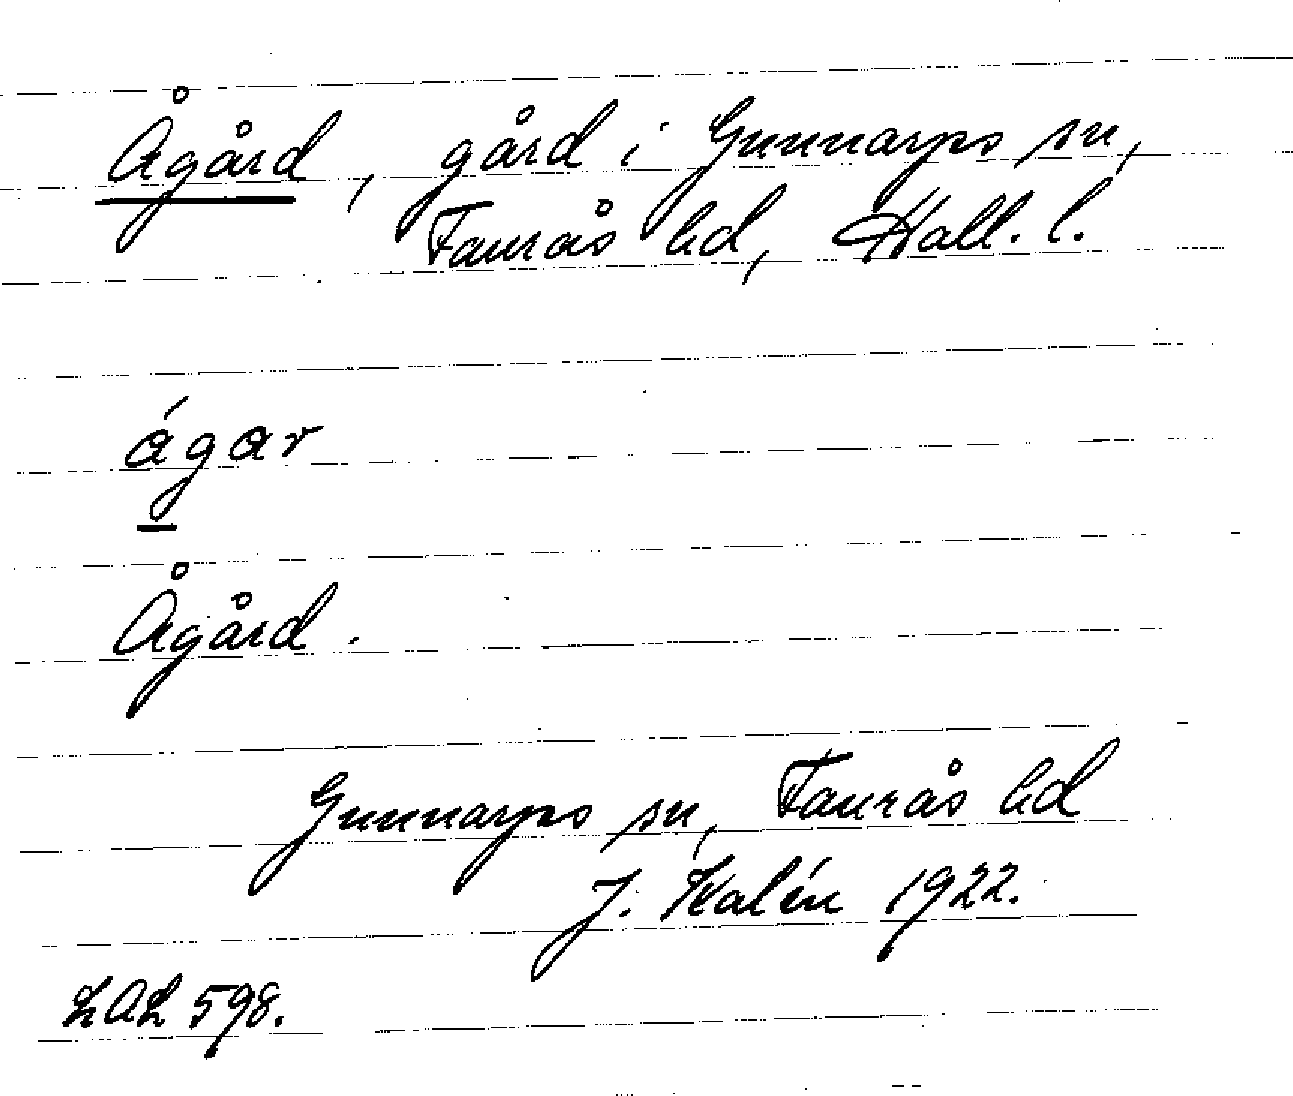 Ågård, gård i Gunnarps sn,
Faurås hd, Hall. l.
ágar
Ågård.
Gunnarps sn, Faurås hd
J. Kalén 1922.
LAL 598.